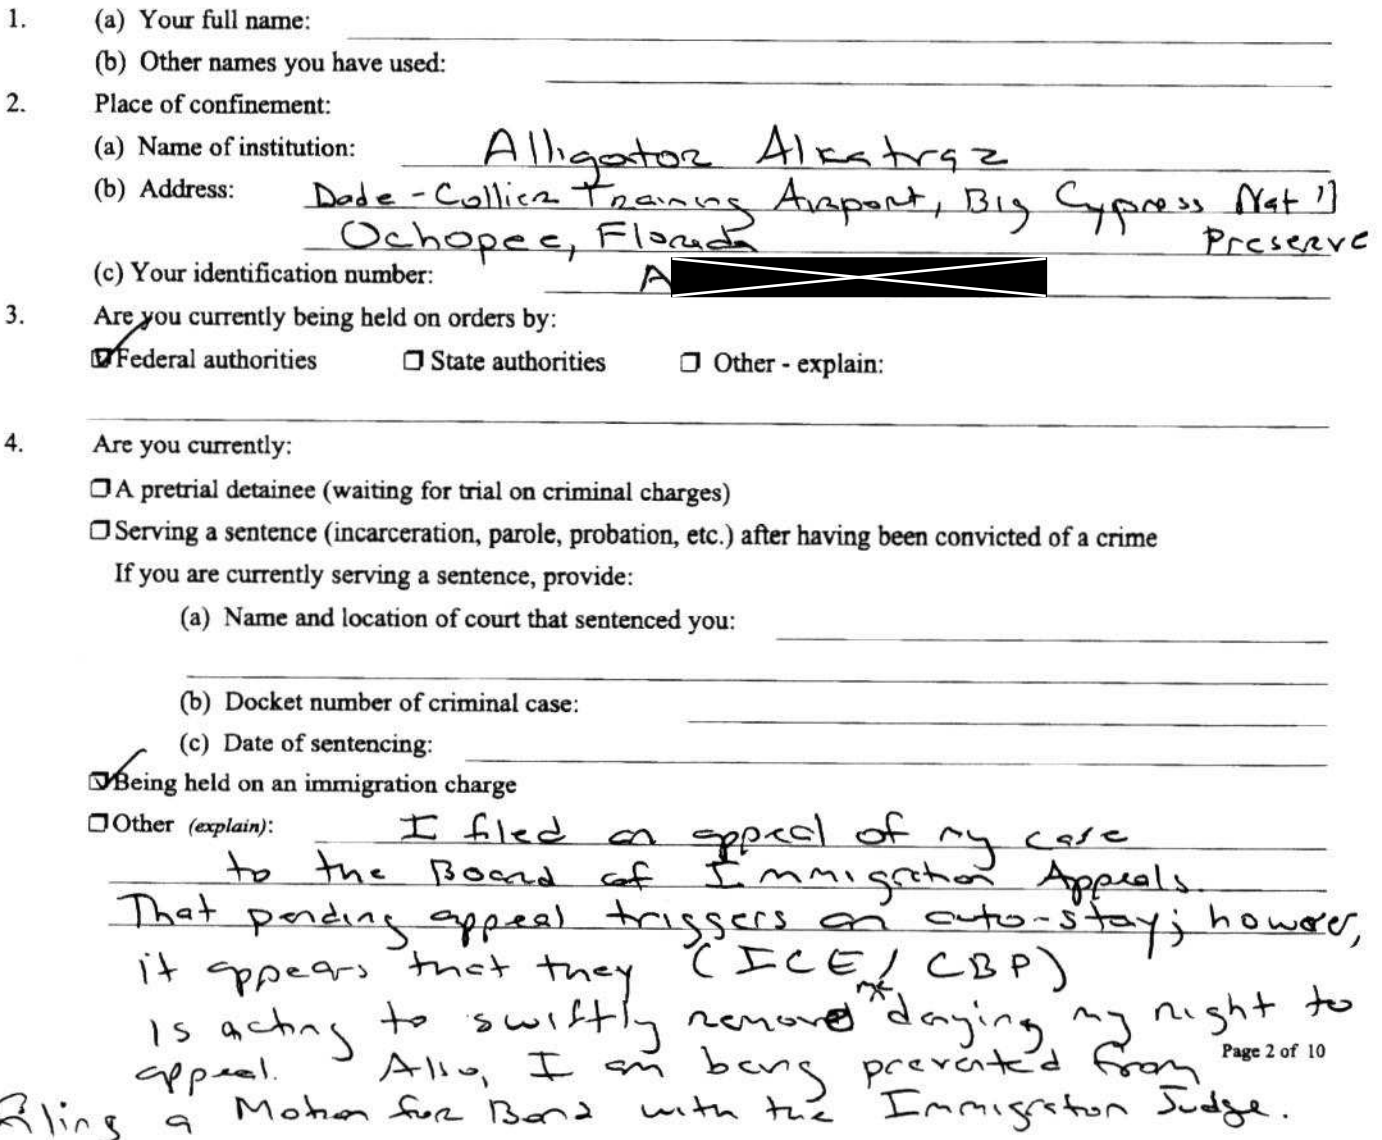 1. (a) Your full name:
(b) Other names you have used:
2. Place of confinement:
(a) Name of institution: Alligator Alkatraz
(b) Address: Dade-Collier Training Airport, Big Cypress Nat'l
Ochopee, Florida Preserve
(c) Your identification number: A
3. Are you currently being held on orders by:
☑Federal authorities ☐ State authorities ☐ Other - explain:
4. Are you currently:
☐A pretrial detainee (waiting for trial on criminal charges)
☐Serving a sentence (incarceration, parole, probation, etc.) after having been convicted of a crime
If you are currently serving a sentence, provide:
(a) Name and location of court that sentenced you:
(b) Docket number of criminal case:
(c) Date of sentencing:
☑Being held on an immigration charge
☐Other (explain): I filed an appeal of my case
to the Board of Immigration Appeals.
That pending appeal triggers an auto-stay; however,
it appears that they (ICE/CBP)
is acting to swiftly remove me denying my right to
appeal. Also, I am being prevented from
Page 2 of 10
filing a Motion for Bond with the Immigration Judge.